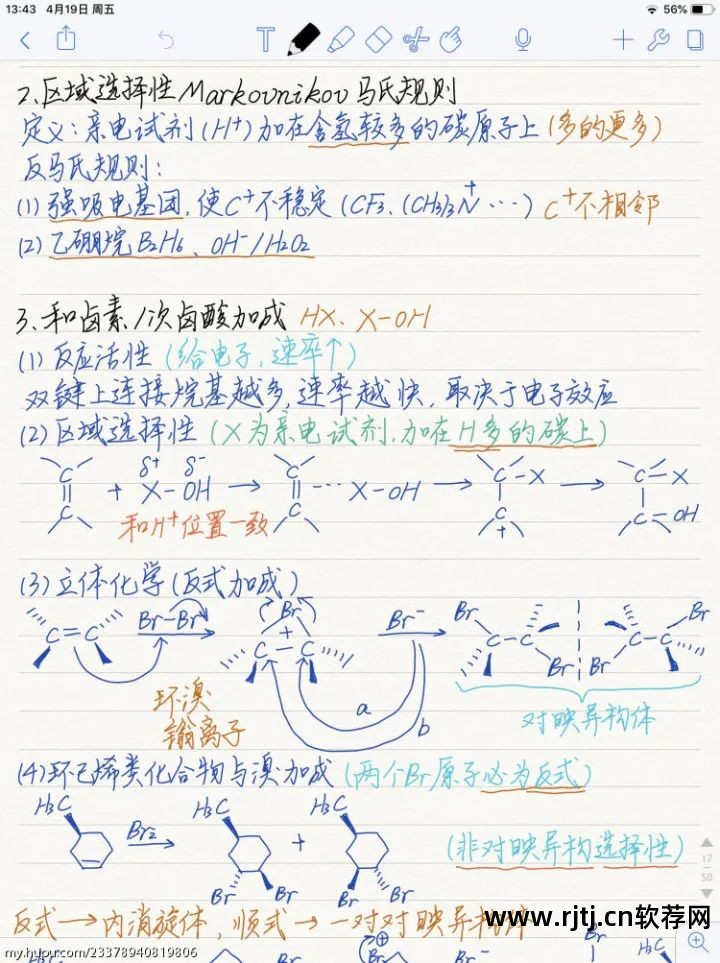 13:43 4月19日 周五
56%
2、区域选择性 Markovnikov 马氏规则
定义：亲电试剂(H+)加在含氢较多的碳原子上(多的更多)
反马氏规则：
(1) 强吸电基团，使C+不稳定 (CF3、(CH3)3N+ …) C+不相邻
(2) 乙硼烷 B2H6、OH-/H2O2
3、和卤素/次卤酸加成 HX、X-OH
(1) 反应活性 (给电子，速率↑)
双键上连接烷基越多，速率越快，取决于电子效应
(2) 区域选择性 (X为亲电试剂，加在H多的碳上)
C=C + δ+ δ- X-OH → C=C ··· X-OH → C-X C+ → C-X C-OH
和H+位置一致
(3) 立体化学(反式加成)
C=C Br-Br → Br + C-C Br- → Br C-C Br Br C-C Br
a
b
环溴
鎓离子
对映异构体
(4) 环己烯类化合物与溴加成 (两个Br原子必为反式)
H3C Br2 → H3C Br Br + H3C Br Br
(非对映异构选择性)
反式→内消旋体，顺式→一对对映异构体
17
50
www.rjtj.cn软荐网
my.hupu.com/23378940819806
Br ⊕ Br- Br H3C